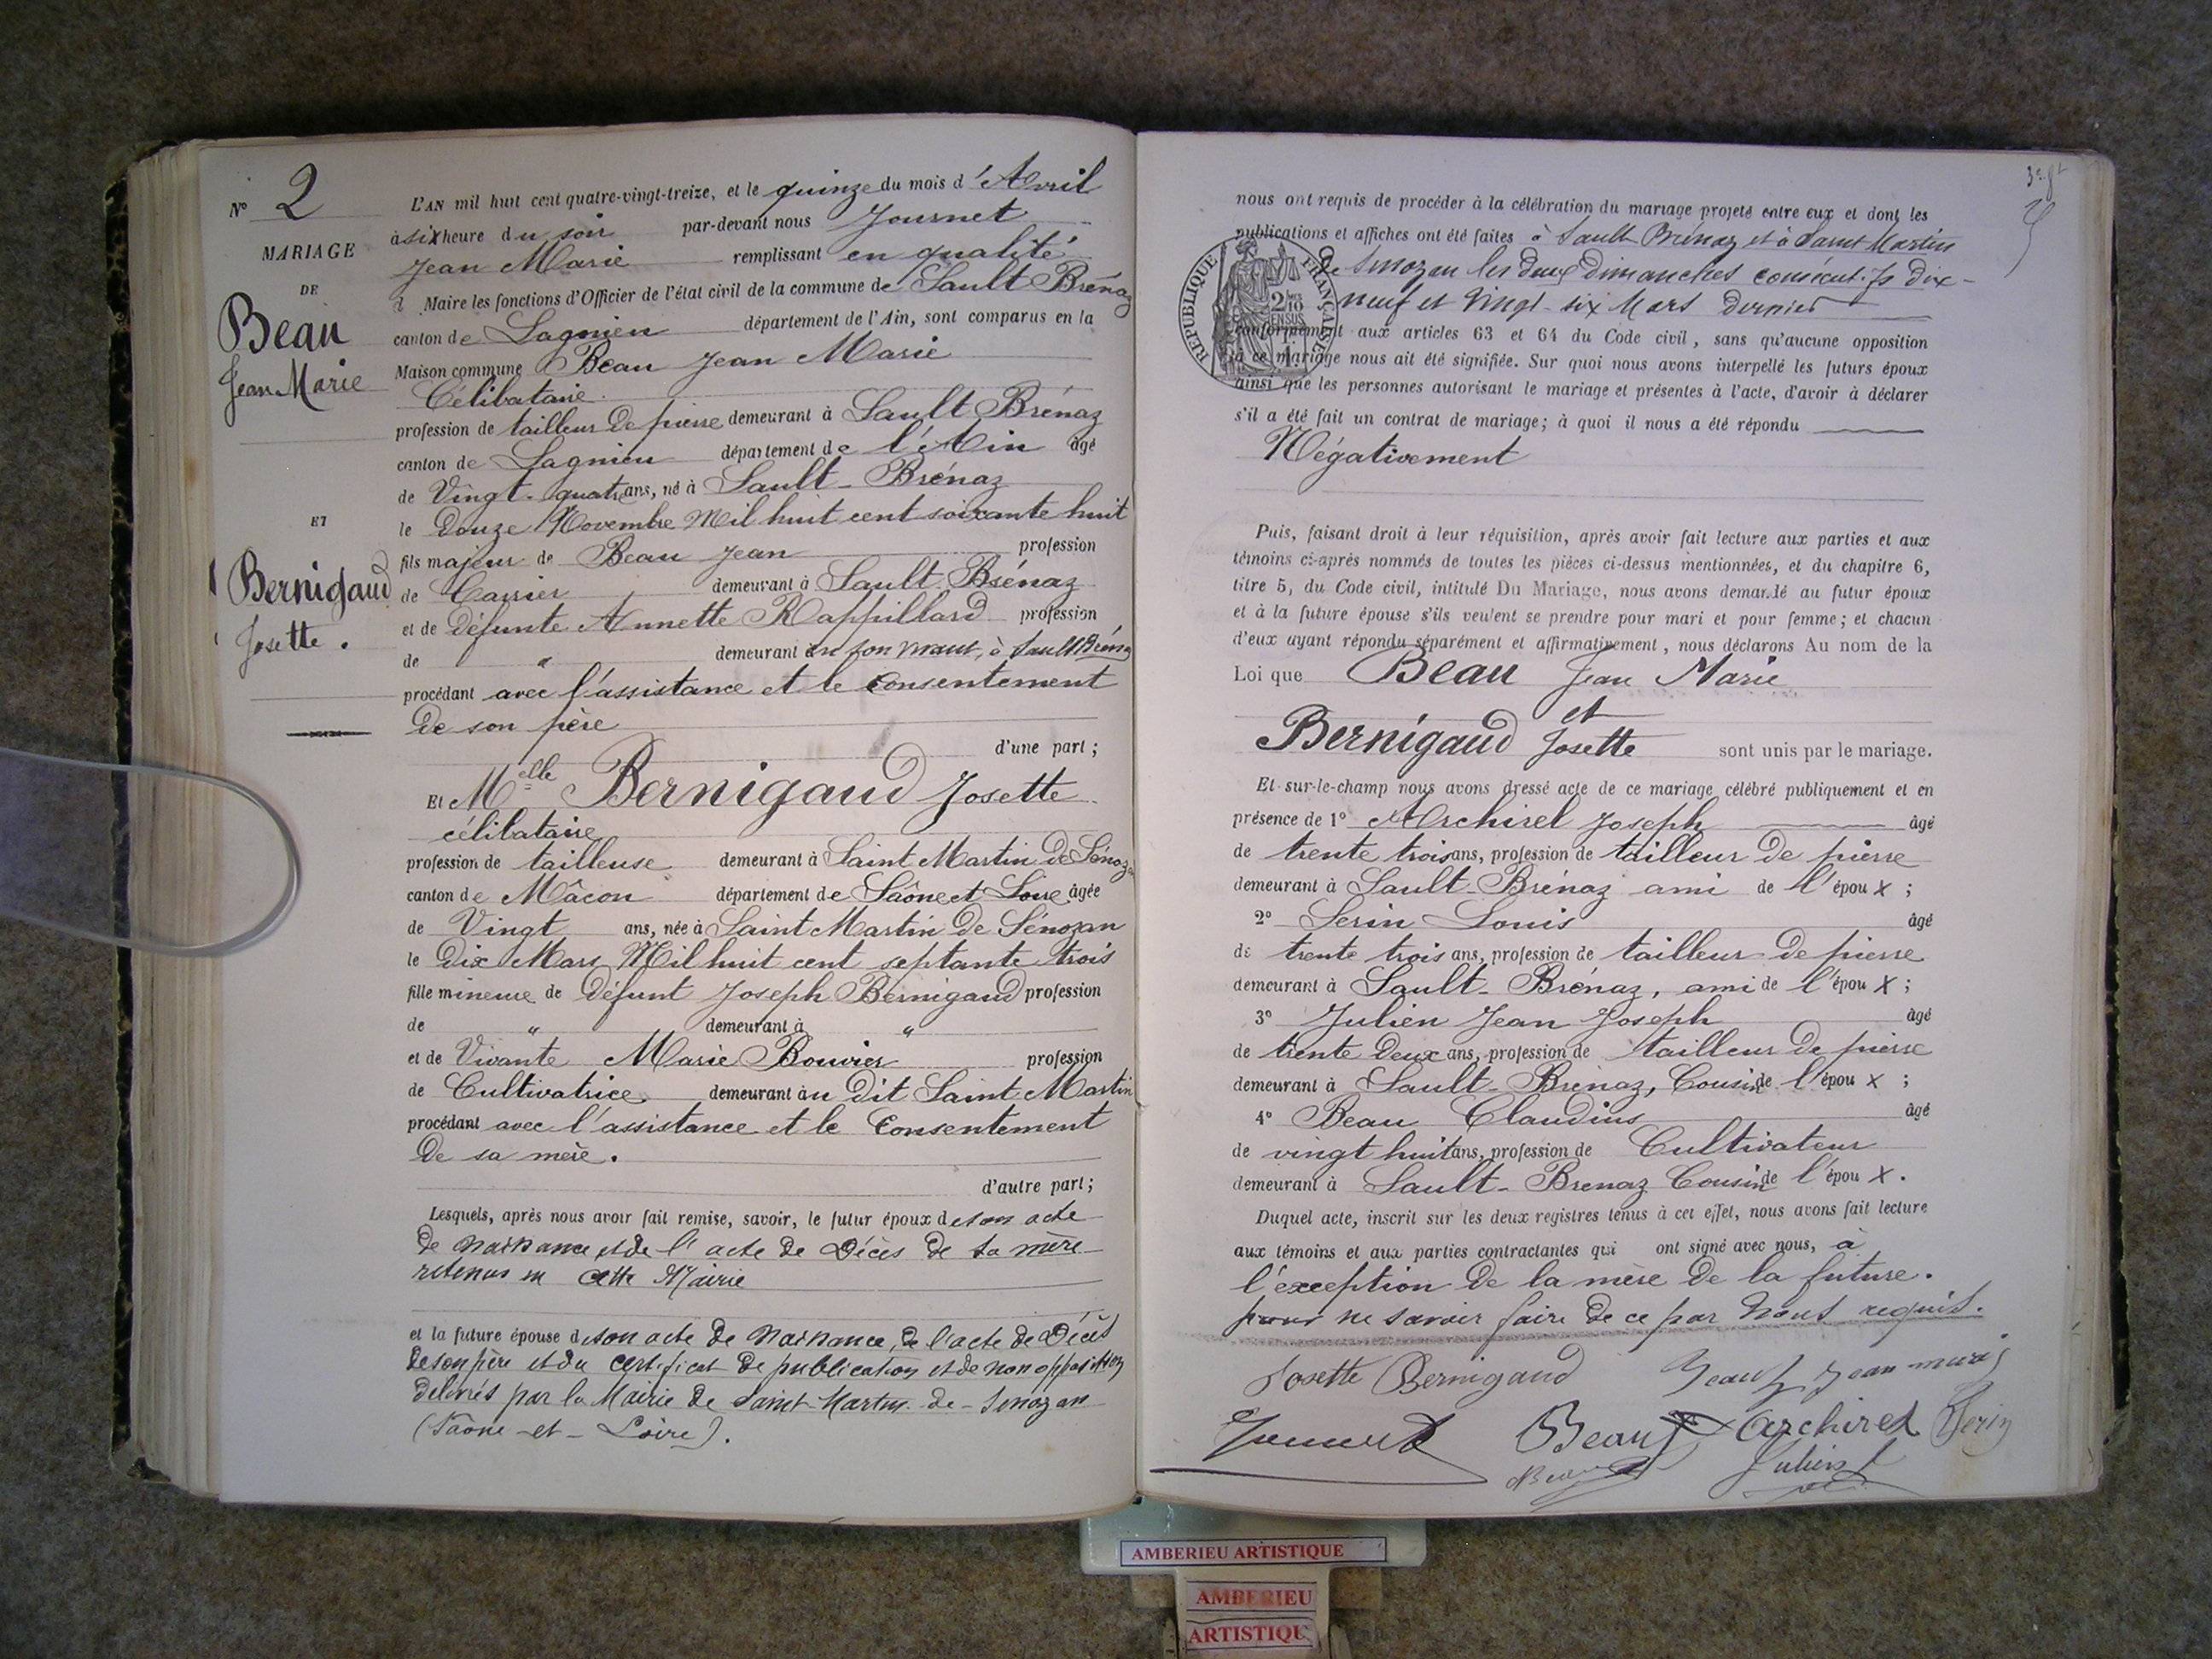 N° 2
MARIAGE
DE
Beau
Jean Marie
ET
Bernigaud
Josette.
L'AN mil huit cent quatre-vingt-treize, et le quinze du mois d'Avril
à six heure du soir par-devant nous Journet
Jean Marie remplissant en qualité
d Maire les fonctions d'Officier de l'état civil de la commune de Sault Brénaz
canton de Lagnieu département de l'Ain, sont comparus en la
Maison commune Beau Jean Marie
Célibataire.
profession de tailleur de pierre demeurant à Sault Brénaz
canton de Lagnieu département de l'Ain âgé
de Vingt-quatre ans, né à Sault-Brénaz
le Douze Novembre Mil huit cent soixante huit
fils majeur de Beau Jean profession
de Carrier demeurant à Sault Brénaz
et de défunte Annette Rappillard profession
de " demeurant en son vivant, à Sault Brénaz
procédant avec l'assistance et le consentement
de son père
d'une part;
Et Melle Bernigaud Josette
célibataire
profession de tailleuse demeurant à Saint Martin de Sénozan
canton de Mâcon département de Saône et Loire âgée
de Vingt ans, née à Saint Martin de Sénozan
le Dix Mars Mil huit cent septante trois
fille mineure de Défunt Joseph Bernigaud profession
de " demeurant à "
et de Vivante Marie Bouvier profession
de Cultivatrice demeurant au dit Saint Martin
procédant avec l'assistance et le Consentement
de sa mère.
d'autre part;
Lesquels, après nous avoir fait remise, savoir, le futur époux de son acte
de naissance et de l'acte de Décès de sa mère
retenus en cette Mairie
et la future épouse de son acte de naissance, de l'acte de Décès
de son père et du certificat de publication et de non opposition
délivrés par la Mairie de Saint-Martin-de-Senozan
(Saône-et-Loire).
nous ont requis de procéder à la célébration du mariage projeté entre eux et dont les
publications et affiches ont été faites à Sault Brénaz et à Saint Martin
de Senozan les deux Dimanches consécutifs dix-
neuf et vingt-six Mars dernier
conformément aux articles 63 et 64 du Code civil, sans qu'aucune opposition
à ce mariage nous ait été signifiée. Sur quoi nous avons interpellé les futurs époux
ainsi que les personnes autorisant le mariage et présentes à l'acte, d'avoir à déclarer
s'il a été fait un contrat de mariage; à quoi il nous a été répondu
Négativement
RÉPUBLIQUE FRANÇAISE
Puis, faisant droit à leur réquisition, après avoir fait lecture aux parties et aux
témoins ci-après nommés de toutes les pièces ci-dessus mentionnées, et du chapitre 6,
titre 5, du Code civil, intitulé Du Mariage, nous avons demandé au futur époux
et à la future épouse s'ils veulent se prendre pour mari et pour femme; et chacun
d'eux ayant répondu séparément et affirmativement, nous déclarons Au nom de la
Loi que Beau Jean Marie
et
Bernigaud Josette sont unis par le mariage.
Et sur-le-champ nous avons dressé acte de ce mariage célébré publiquement et en
présence de 1° Archirel Joseph âgé
de trente trois ans, profession de tailleur de pierre
demeurant à Sault-Brénaz ami de l'époux;
2° Serin Louis âgé
de trente trois ans, profession de tailleur de pierre
demeurant à Sault-Brénaz, ami de l'époux;
3° Julien Jean Joseph âgé
de trente deux ans, profession de tailleur de pierre
demeurant à Sault-Brénaz, Cousin de l'époux;
4° Beau Claudius âgé
de vingt huit ans, profession de Cultivateur
demeurant à Sault-Brenaz Cousin de l'époux.
Duquel acte, inscrit sur les deux registres tenus à cet effet, nous avons fait lecture
aux témoins et aux parties contractantes qui ont signé avec nous, à
l'exception de la mère de la future.
pour ne savoir faire de ce par nous requis.
Josette Bernigaud Beau Jean marie
Journet Beau Archirel Serin
Beau Julien
AMBERIEU ARTISTIQUE
AMBERIEU
ARTISTIQU